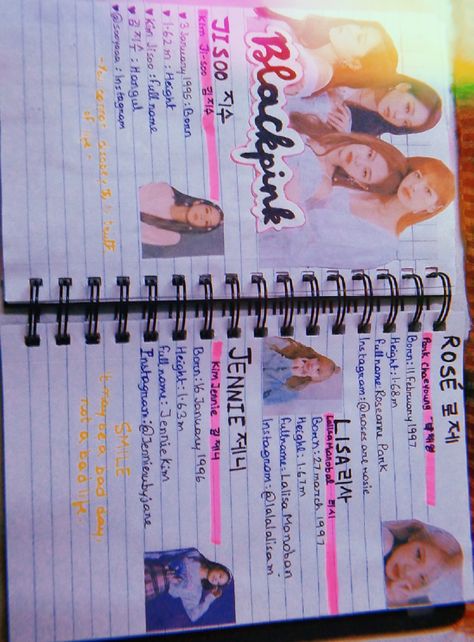 Blackpink
JISOO 지수
Kim Ji-soo 김지수
♥ 3 January 1995 : Born
♥ 1.62m : Height
♥ Kim Jisoo : Full name
♥ 김지수 : Hangul
♥ @sooyaaa : Instagram
of life -
ROSÉ 로제
Park Chaeyoung 박채영
Born: 11 February 1997
Height: 1.68m
full name: Roseanne Park
Instagram: @roses are rosie
LISA 리사
Lalisa Manobal
Born: 27 march 1997
Height: 1.67m
Fullname: Lalisa Manoban
Instagram: @lalalalisa m
JENNIE 제니
Kim Jennie 김제니
Born: 16 January 1996
Height: 1.63m
full name: Jennie Kim
Instagram: @Jennierubyjane
SMILE
it may be a bad day,
not a bad life.